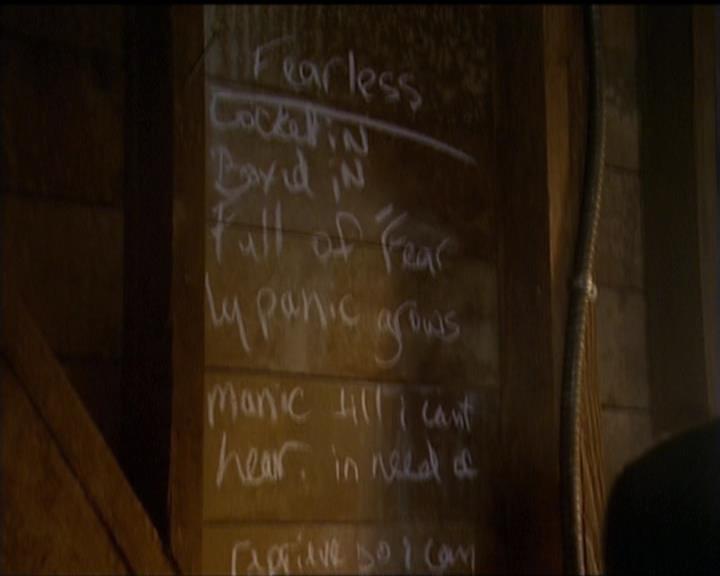 Fearless
Locked iN
Boxed iN
Full of "Fear
My panic grows
manic till i cant
hear. in need of
so i can